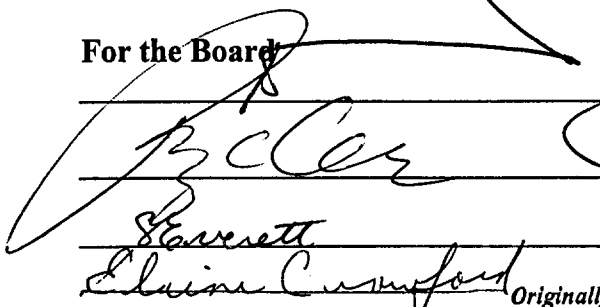 For the Board
SEverett
Elaine Crawford
Originall